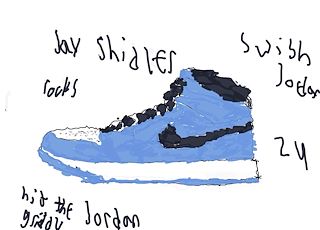 Jay Shidler
rocks
Swish
Jordan
24
hit the Jordan